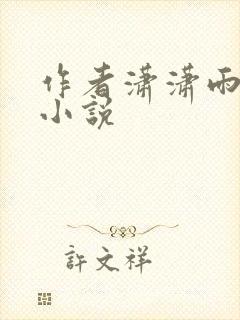 作者潇潇雨
小説
許文祥